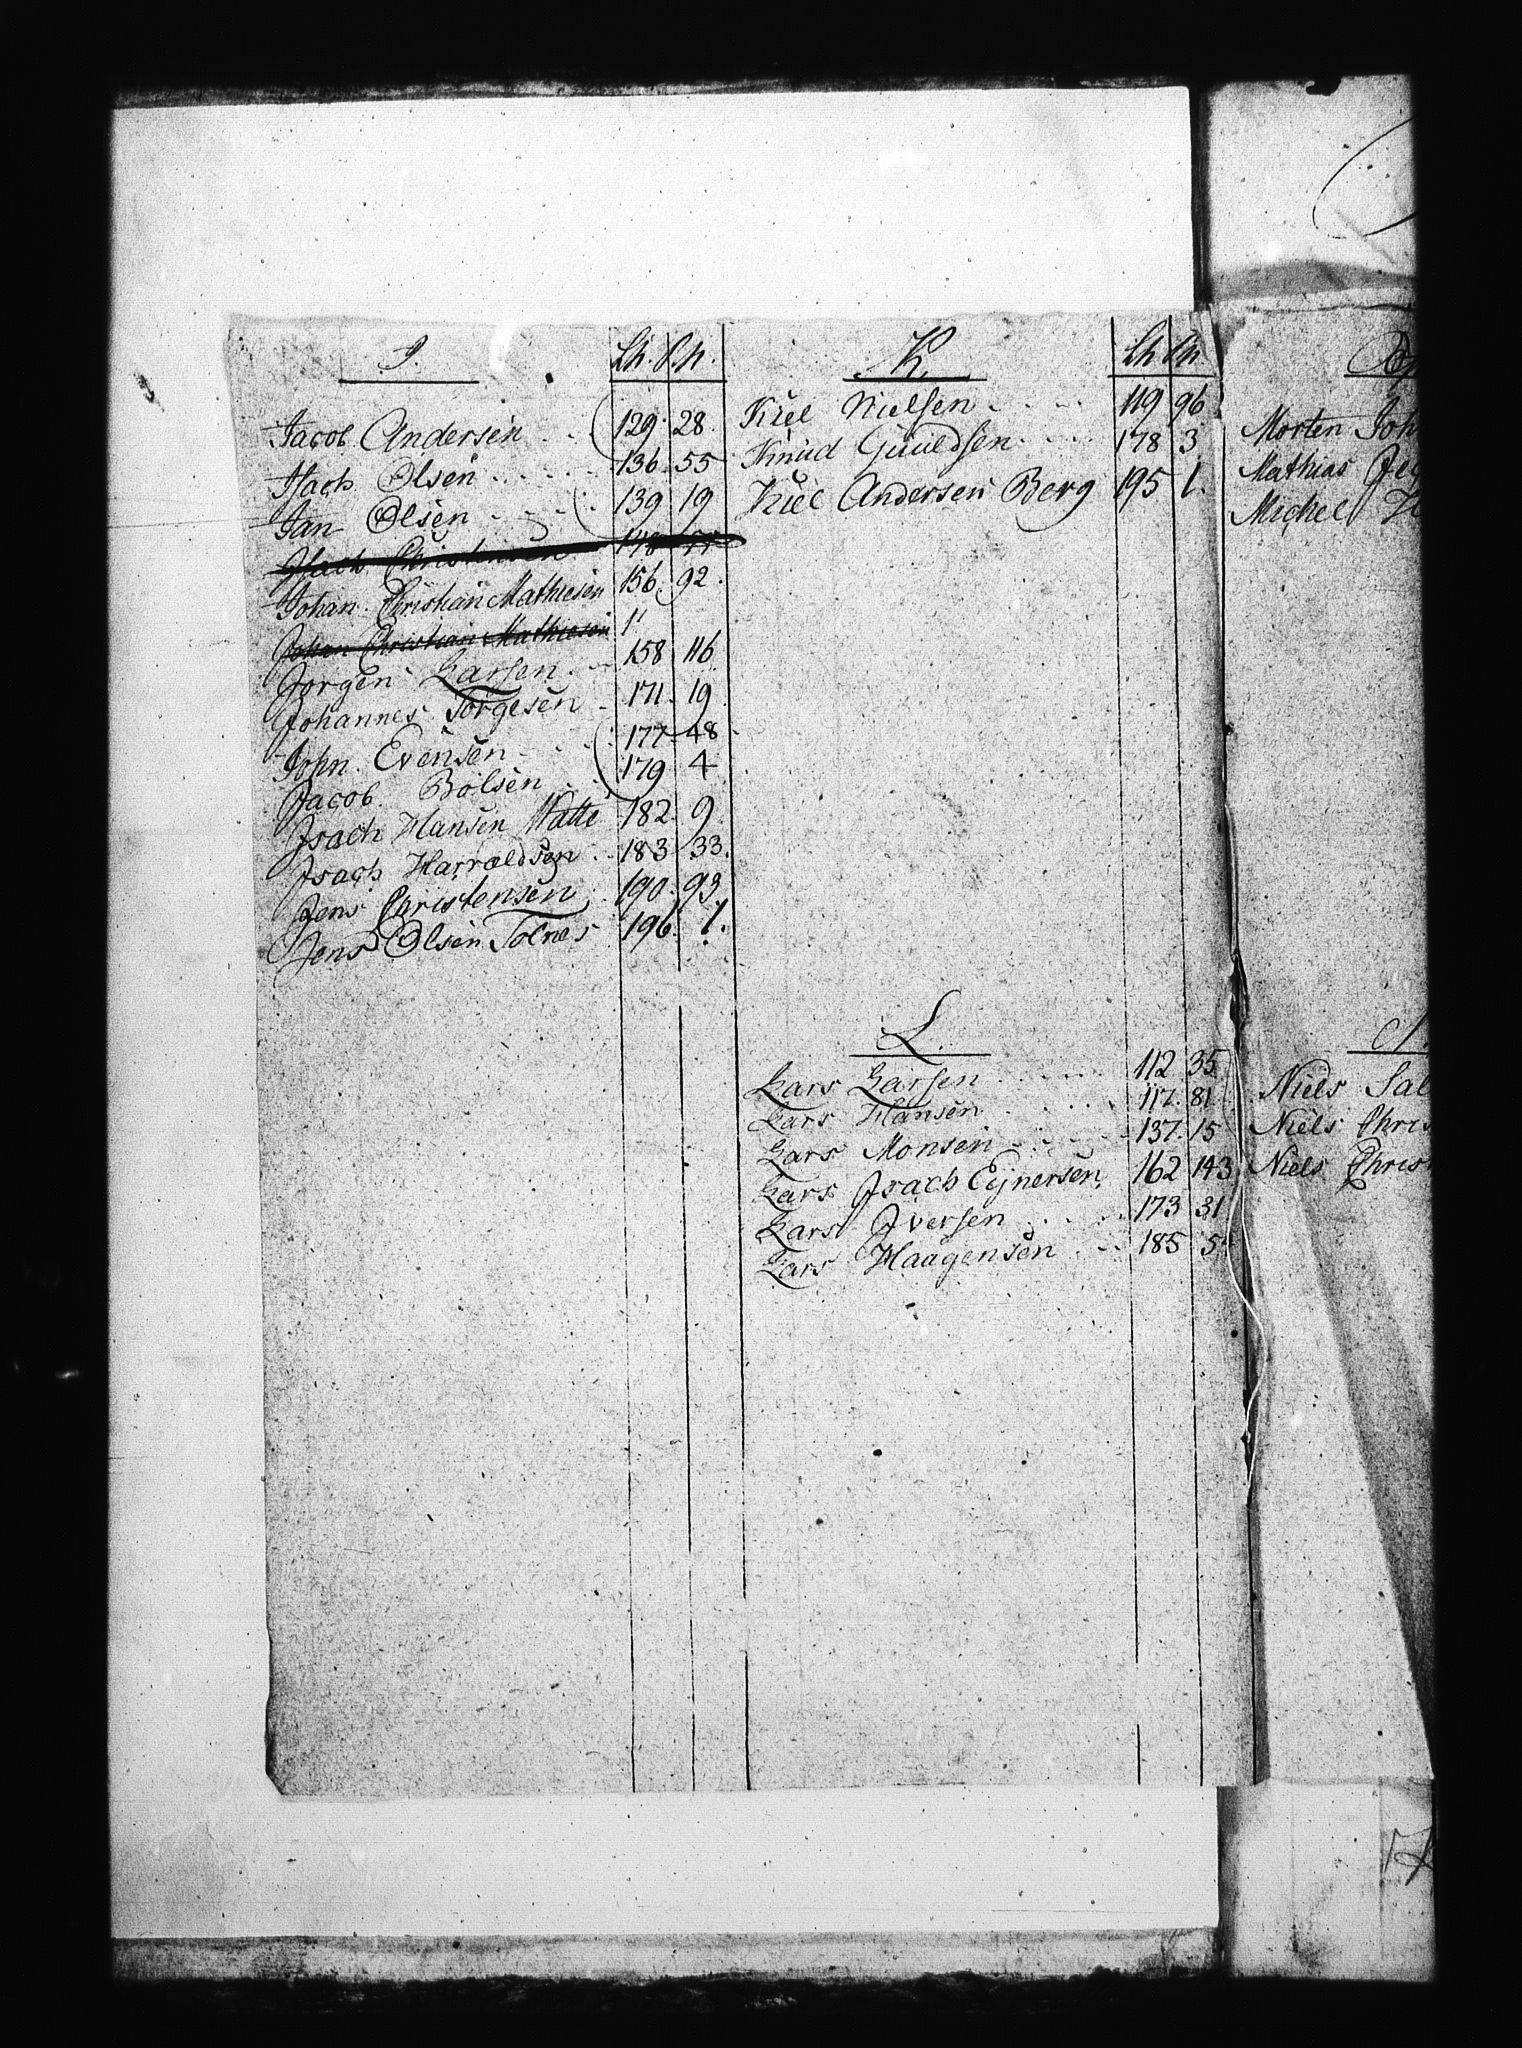 J.
Lh. P.N.
Jacob Andersen . . 129. 28.
Isach Olsen . . . . . 136. 55
Jan Olsen . . . . . 139 19
Isach Christensen 148 55
Johan Christian Mathiesen 156. 92.
Johan Christian Mathiesen 1'
Jorgen Larsen . 158 116
Johannes Torgesen . 171. 19
John Evensen . . . 177 48
Jacob Bolsen . . 179 4
Isach Hansen Watte 182. 9
Isach Harraldsen . 183 33.
Jens Christensen . 190. 93
Jens Olsen Tolnes 196. 1.
K.
Lh PN
Kiel Nielsen . . . . 119 96
Knud Guuldsen . . . . 178 3
Kiel Andersen Berg 195 1.
L.
Lars Larsen . . . . . 112 35
Lars Hansen . . . . 117. 81
Lars Monsen . . . . . 137. 15
Lars Isach Ejnersen. 162 143
Lars Iversen . . . . 173 31
Lars Haagensen . . . 185 5
Morten Joh
Mathias
Michel
N.
Niels Sal
Niels Chris
Niels Christ